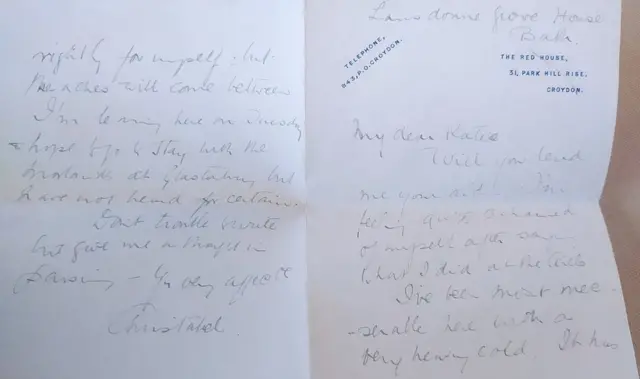 Lansdowne Grove House
Bath.
TELEPHONE,
943, P.O. CROYDON.
THE RED HOUSE,
51, PARK HILL RISE,
CROYDON.
My dear Katie
Will you lend
me your aid? I'm
feeling quite ashamed
of myself after
what I did at the
I've been most mee-
-serable here with a
very heavy cold. It has
rightly for myself - but
aches will come between
I'm leaving here on Tuesday
& hope to go & stay with the
Morlands at Glastonbury but
have not heard for certain.
Don't trouble to write
but give me a thought in
passing - Yr very affecte